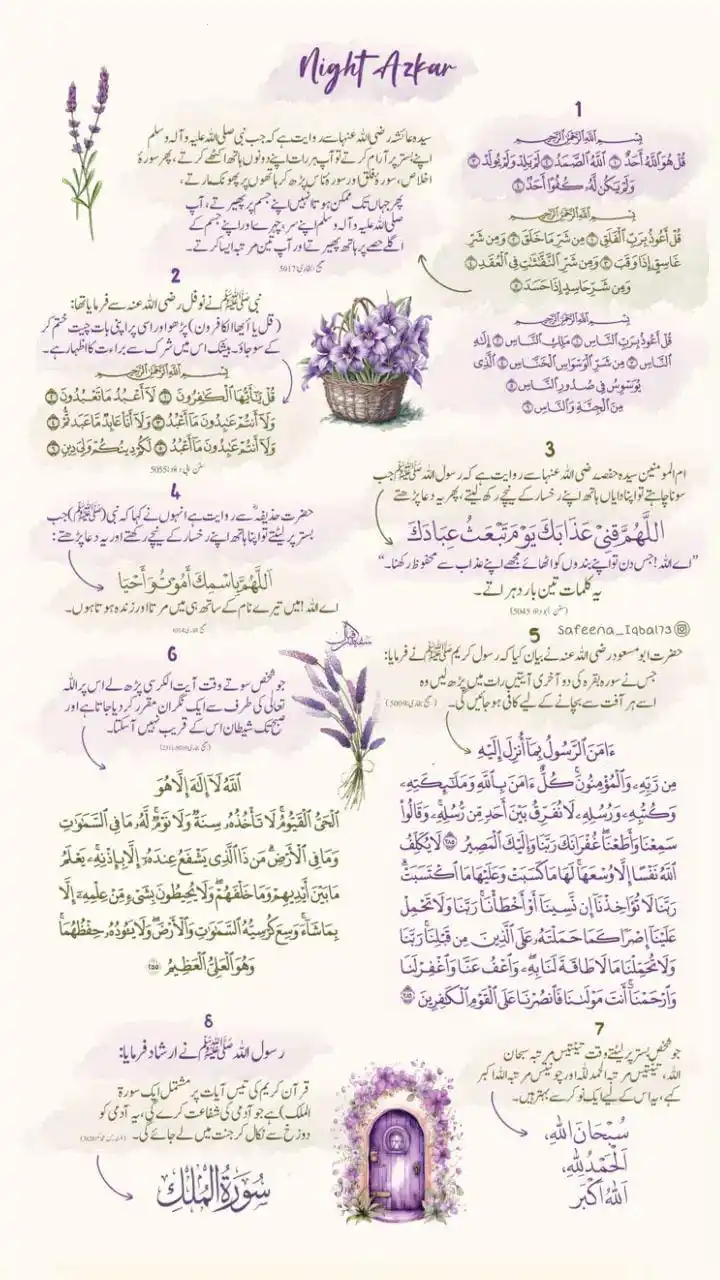 Night Azkar
1
سیدہ عائشہ رضی اللہ عنہا سے روایت ہے کہ جب نبی صلی اللہ علیہ وآلہ وسلم
اپنے بستر پر آرام کرتے تو آپ ہر رات اپنے دونوں ہاتھ اکٹھے کرتے، پھر سورۂ
اخلاص، سورۂ فلق اور سورۂ ناس پڑھ کر ہاتھوں پر پھونک مارتے،
پھر جہاں تک ممکن ہوتا انہیں اپنے جسم پر پھیرتے، آپ
صلی اللہ علیہ وآلہ وسلم اپنے سر، چہرے اور اپنے جسم کے
اگلے حصے پر ہاتھ پھیرتے اور آپ تین مرتبہ ایسا کرتے۔
صحیح البخاری 5017
بِسْمِ اللَّهِ الرَّحْمَٰنِ الرَّحِيمِ
قُلْ هُوَ اللَّهُ أَحَدٌ ١ اللَّهُ الصَّمَدُ ٢ لَمْ يَلِدْ وَلَمْ يُولَدْ ٣
وَلَمْ يَكُن لَّهُ كُفُوًا أَحَدٌ ٤
بِسْمِ اللَّهِ الرَّحْمَٰنِ الرَّحِيمِ
قُلْ أَعُوذُ بِرَبِّ الْفَلَقِ ١ مِن شَرِّ مَا خَلَقَ ٢ وَمِن شَرِّ
غَاسِقٍ إِذَا وَقَبَ ٣ وَمِن شَرِّ النَّفَّاثَاتِ فِي الْعُقَدِ ٤
وَمِن شَرِّ حَاسِدٍ إِذَا حَسَدَ ٥
بِسْمِ اللَّهِ الرَّحْمَٰنِ الرَّحِيمِ
قُلْ أَعُوذُ بِرَبِّ النَّاسِ ١ مَلِكِ النَّاسِ ٢ إِلَٰهِ
النَّاسِ ٣ مِن شَرِّ الْوَسْوَاسِ الْخَنَّاسِ ٤ الَّذِي
يُوَسْوِسُ فِي صُدُورِ النَّاسِ ٥
مِنَ الْجِنَّةِ وَالنَّاسِ ٦
2
نبی ﷺ نے نوفل رضی اللہ عنہ سے فرمایا تھا:
(قل یا أیھا الکافرون) پڑھو اور اسی پر اپنی بات چیت ختم کر
کے سو جاؤ۔ بیشک اس میں شرک سے براءت کا اظہار ہے۔
بِسْمِ اللَّهِ الرَّحْمَٰنِ الرَّحِيمِ
قُلْ يَا أَيُّهَا الْكَافِرُونَ ١ لَا أَعْبُدُ مَا تَعْبُدُونَ ٢
وَلَا أَنتُمْ عَابِدُونَ مَا أَعْبُدُ ٣ وَلَا أَنَا عَابِدٌ مَّا عَبَدتُّمْ ٤
وَلَا أَنتُمْ عَابِدُونَ مَا أَعْبُدُ ٥ لَكُمْ دِينُكُمْ وَلِيَ دِينِ ٦
سنن ابی داؤد: 5055
3
ام المومنین سیدہ حفصہ رضی اللہ عنہا سے روایت ہے کہ رسول اللہ ﷺ جب
سونا چاہتے تو اپنا دایاں ہاتھ اپنے رخسار کے نیچے رکھ لیتے، پھر یہ دعا پڑھتے
اللَّهُمَّ قِنِي عَذَابَكَ يَوْمَ تَبْعَثُ عِبَادَكَ
”اے اللہ! جس دن تو اپنے بندوں کو اٹھائے مجھے اپنے عذاب سے محفوظ رکھنا۔“
یہ کلمات تین بار دہراتے۔
(سنن ابو داؤد 5045)
4
حضرت حذیفہؓ سے روایت ہے انہوں نے کہا کہ نبی (ﷺ) جب
بستر پر لیٹتے تو اپنا ہاتھ اپنے رخسار کے نیچے رکھتے اور یہ دعا پڑھتے:
اَللَّهُمَّ بِاسْمِكَ أَمُوتُ وَأَحْيَا
اے اللہ! میں تیرے نام کے ساتھ ہی میں مرتا اور زندہ ہوتا ہوں۔
Safeena_Iqbal73
5
حضرت ابو مسعود رضی اللہ عنہ نے بیان کیا کہ رسول کریم ﷺ نے فرمایا:
جس نے سورہ بقرہ کی دو آخری آیتیں رات میں پڑھ لیں وہ
اسے ہر آفت سے بچانے کے لیے کافی ہو جائیں گی۔ (صحیح بخاری: 5009)
ءَامَنَ الرَّسُولُ بِمَا أُنزِلَ إِلَيْهِ
مِن رَّبِّهِ وَالْمُؤْمِنُونَ كُلٌّ ءَامَنَ بِاللَّهِ وَمَلَائِكَتِهِ
وَكُتُبِهِ وَرُسُلِهِ لَا نُفَرِّقُ بَيْنَ أَحَدٍ مِّن رُّسُلِهِ وَقَالُوا
سَمِعْنَا وَأَطَعْنَا غُفْرَانَكَ رَبَّنَا وَإِلَيْكَ الْمَصِيرُ ٢٨٥ لَا يُكَلِّفُ
اللَّهُ نَفْسًا إِلَّا وُسْعَهَا لَهَا مَا كَسَبَتْ وَعَلَيْهَا مَا اكْتَسَبَتْ
رَبَّنَا لَا تُؤَاخِذْنَا إِن نَّسِينَا أَوْ أَخْطَأْنَا رَبَّنَا وَلَا تَحْمِلْ
عَلَيْنَا إِصْرًا كَمَا حَمَلْتَهُ عَلَى الَّذِينَ مِن قَبْلِنَا رَبَّنَا
وَلَا تُحَمِّلْنَا مَا لَا طَاقَةَ لَنَا بِهِ وَاعْفُ عَنَّا وَاغْفِرْ لَنَا
وَارْحَمْنَا أَنتَ مَوْلَانَا فَانصُرْنَا عَلَى الْقَوْمِ الْكَافِرِينَ ٢٨٦
6
جو شخص سوتے وقت آیت الکرسی پڑھ لے اس پر اللہ
تعالیٰ کی طرف سے ایک نگران مقرر کر دیا جاتا ہے اور
صبح تک شیطان اس کے قریب نہیں آ سکتا۔
اللَّهُ لَا إِلَٰهَ إِلَّا هُوَ
الْحَيُّ الْقَيُّومُ لَا تَأْخُذُهُ سِنَةٌ وَلَا نَوْمٌ لَّهُ مَا فِي السَّمَاوَاتِ
وَمَا فِي الْأَرْضِ مَن ذَا الَّذِي يَشْفَعُ عِندَهُ إِلَّا بِإِذْنِهِ يَعْلَمُ
مَا بَيْنَ أَيْدِيهِمْ وَمَا خَلْفَهُمْ وَلَا يُحِيطُونَ بِشَيْءٍ مِّنْ عِلْمِهِ إِلَّا
بِمَا شَاءَ وَسِعَ كُرْسِيُّهُ السَّمَاوَاتِ وَالْأَرْضَ وَلَا يَئُودُهُ حِفْظُهُمَا
وَهُوَ الْعَلِيُّ الْعَظِيمُ ٢٥٥
7
جو شخص بستر پر لیٹتے وقت تینتیس مرتبہ سبحان
اللہ، تینتیس مرتبہ الحمد للہ اور چونتیس مرتبہ اللہ اکبر
کہے، یہ اس کے لیے ایک نوکر سے بہتر ہیں۔
سُبْحَانَ اللهِ،
اَلْحَمْدُ لِلّٰهِ،
اَللهُ اَكْبَر
8
رسول اللہ ﷺ نے ارشاد فرمایا:
قرآن کریم کی تیس آیات پر مشتمل ایک سورۃ
الملک) ہے جو آدمی کی شفاعت کرے گی، یہ آدمی کو
دوزخ سے نکال کر جنت میں لے جائے گی۔
سُورَةُ الْمُلْك